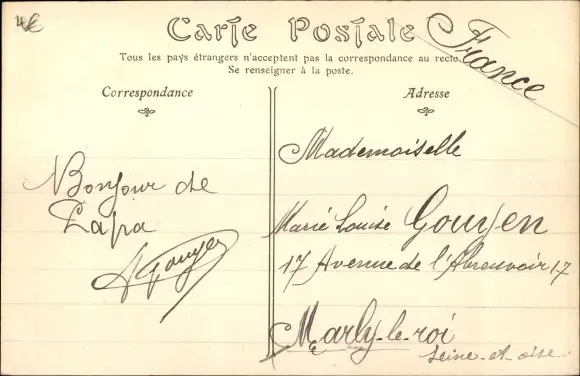 4€
Carte Postale
France
Tous les pays étrangers n'acceptent pas la correspondance au recto.
Se renseigner à la poste.
Correspondance
Adresse
Bonjour de
Papa
Mademoiselle
Marie Louise Gouyen
17 Avenue de l'Abreuvoir 17
Marly-le-roi
Seine-et-oise